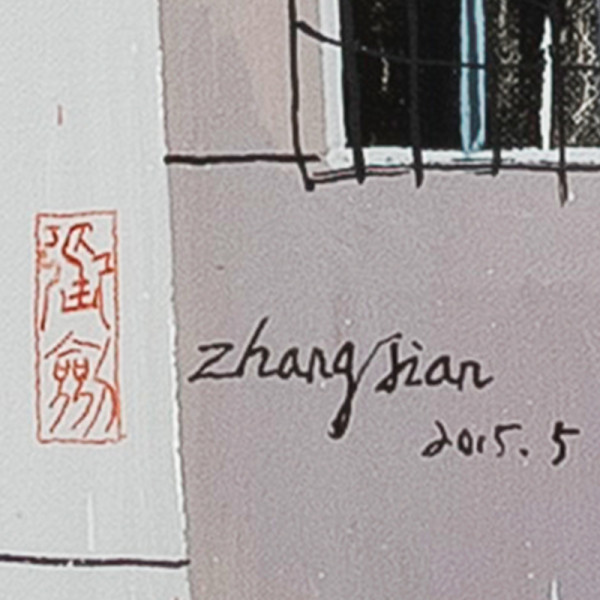 劍
zhangjian
2015.5